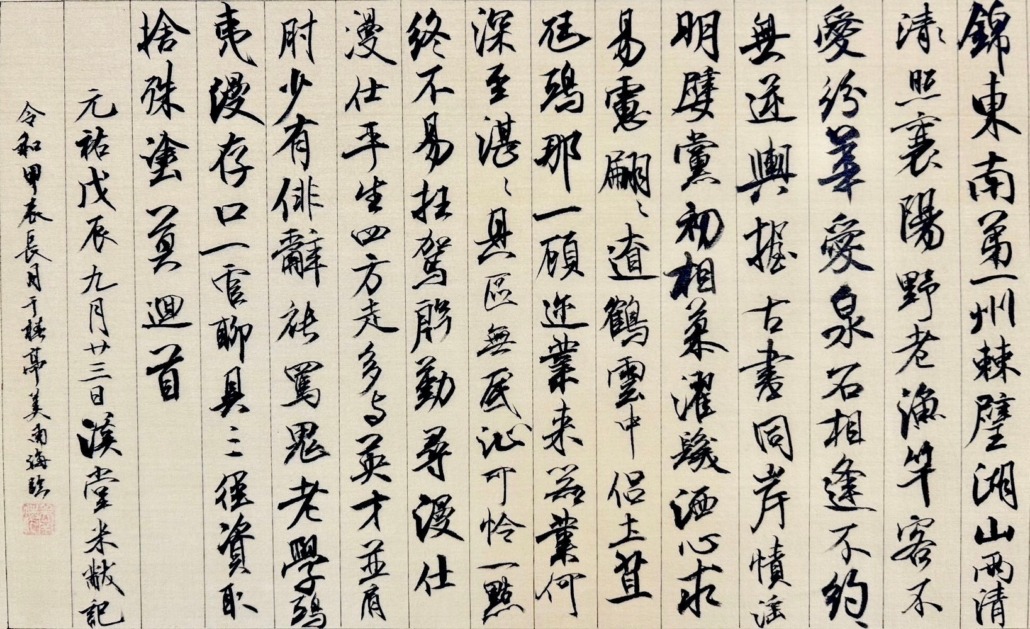 錦東南第一州棘璧湖山兩清
清照襄陽野老漁竿客不
愛紛華愛泉石相逢不約〻
無逆輿握古書同岸幘滛
朋嬖黨初相慕濯髮洒心求
易慮翩〻遼鶴雲中侶土苴
尫鴟那一顧迩業来器業何
深至湛〻具區無底沚可憐一點
終不易枉駕殷勤尋漫仕
漫仕平生四方走多与英才並肩
肘少有俳辭能罵鬼老學鴟
夷漫存口一官聊具三徑資取
捨殊塗莫迴首
元祐戊辰九月廿三日溪堂米黻記
令和甲辰長月于